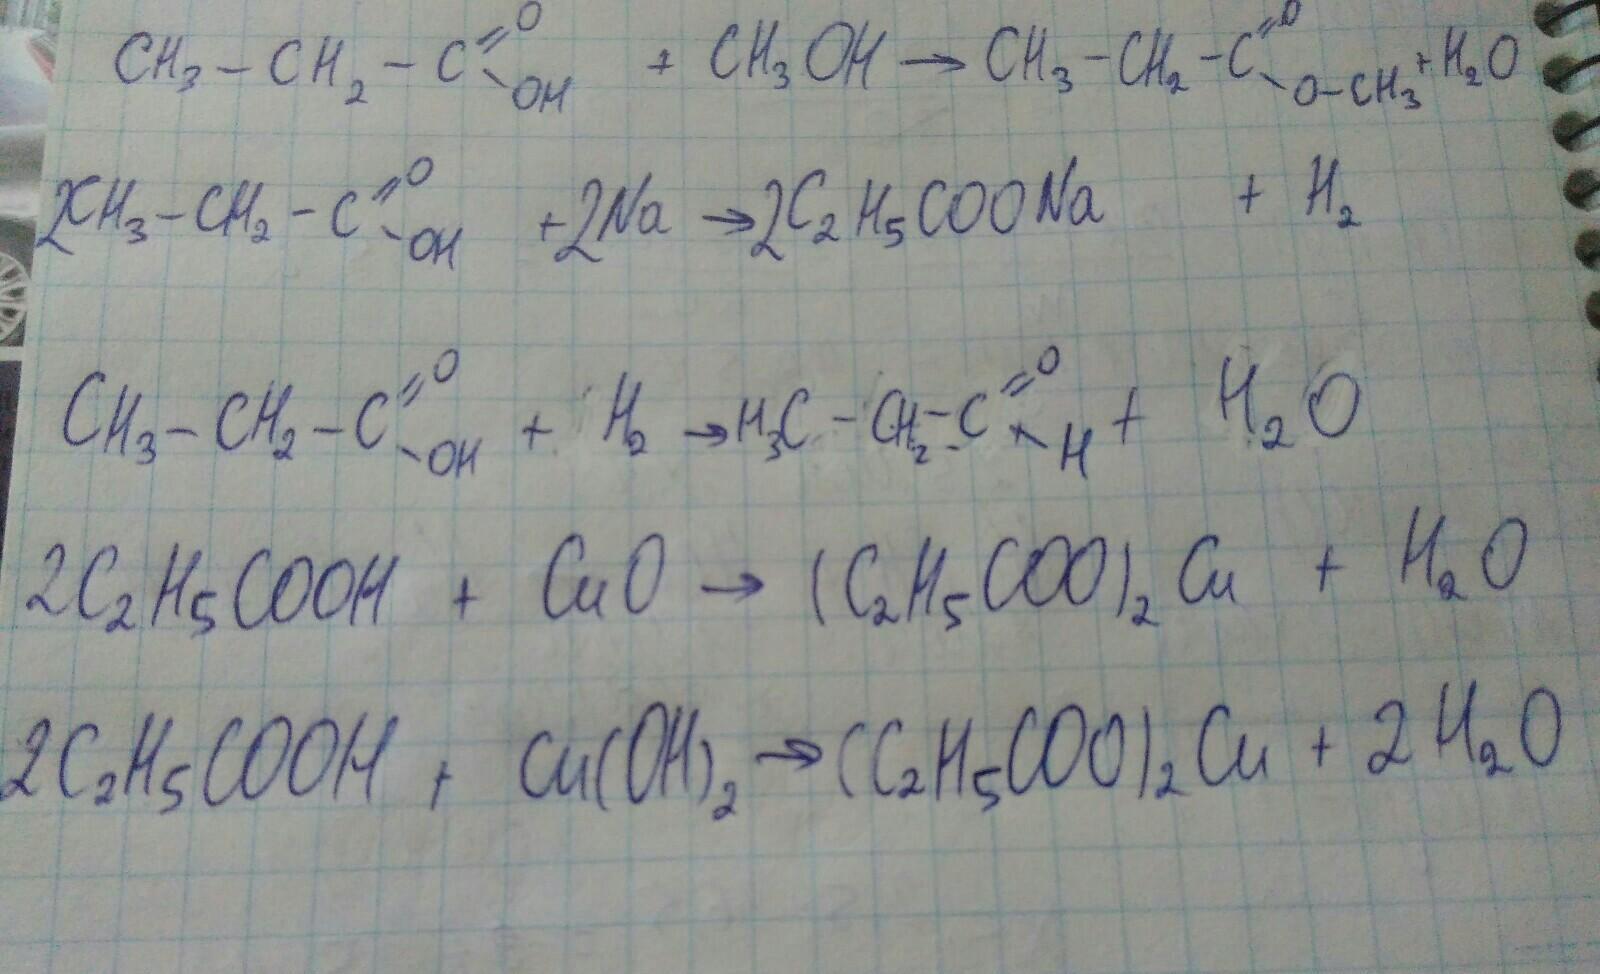 CH₃ – CH₂ – C(=O)–OH + CH₃OH → CH₃ – CH₂ – C(=O)–O–CH₃ + H₂O
2CH₃ – CH₂ – C(=O)–OH + 2Na → 2C₂H₅COONa + H₂
CH₃ – CH₂ – C(=O)–OH + H₂ → H₃C – CH₂ – C(=O)–H + H₂O
2C₂H₅COOH + CuO → (C₂H₅COO)₂Cu + H₂O
2C₂H₅COOH + Cu(OH)₂ → (C₂H₅COO)₂Cu + 2H₂O